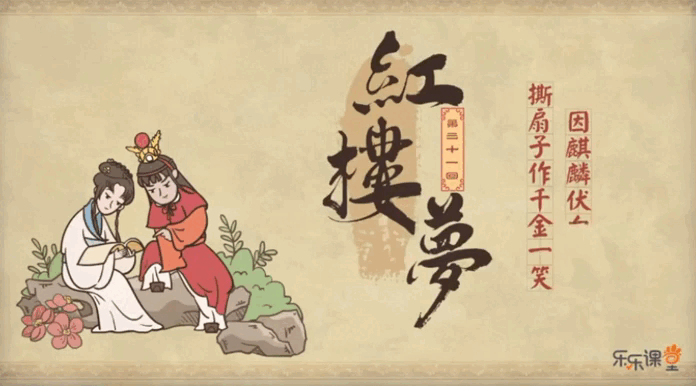 紅樓夢
第三十一回
撕扇子作千金一笑
因麒麟伏
乐乐课堂